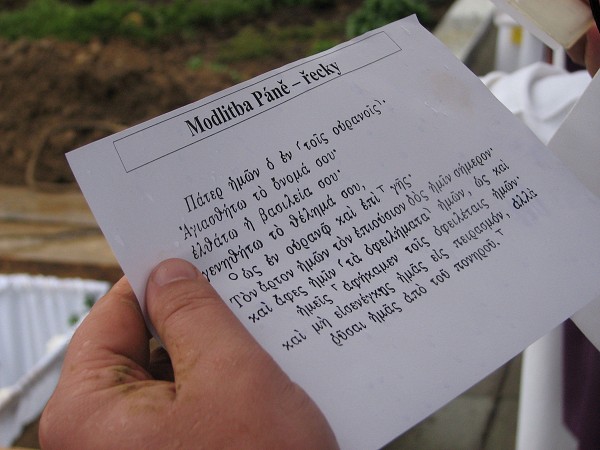 Modlitba Páně – řecky
Πάτερ ἡμῶν ὁ ἐν ⸂τοῖς οὐρανοῖς⸃·
Ἁγιασθήτω τὸ ὄνομά σου·
ἐλθάτω ἡ βασιλεία σου·
γενηθήτω τὸ θέλημά σου,
⸰ ὡς ἐν οὐρανῷ καὶ ἐπὶ ⸆ γῆς·
Τὸν ἄρτον ἡμῶν τὸν ἐπιούσιον δὸς ἡμῖν σήμερον·
καὶ ἄφες ἡμῖν ⸂τὰ ὀφειλήματα⸃ ἡμῶν, ὡς καὶ
ἡμεῖς ⸀ἀφήκαμεν τοῖς ὀφειλέταις ἡμῶν·
καὶ μὴ εἰσενέγκῃς ἡμᾶς εἰς πειρασμόν, ἀλλὰ
ῥῦσαι ἡμᾶς ἀπὸ τοῦ πονηροῦ. ⸆